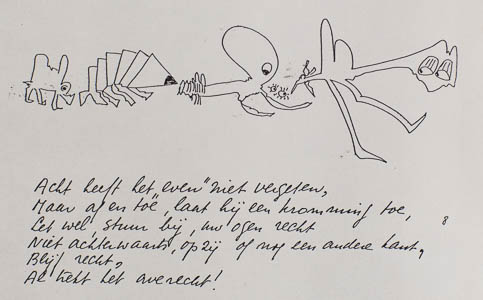 Acht heeft het "even" niet vergeten,
Maar af en toe, laat hij een kromming toe,
Let wel, stuur bij, uw ogen recht
8
Niet achterwaarts, opzij of nog een andere kant,
Blijf recht,
Al trekt het averecht!